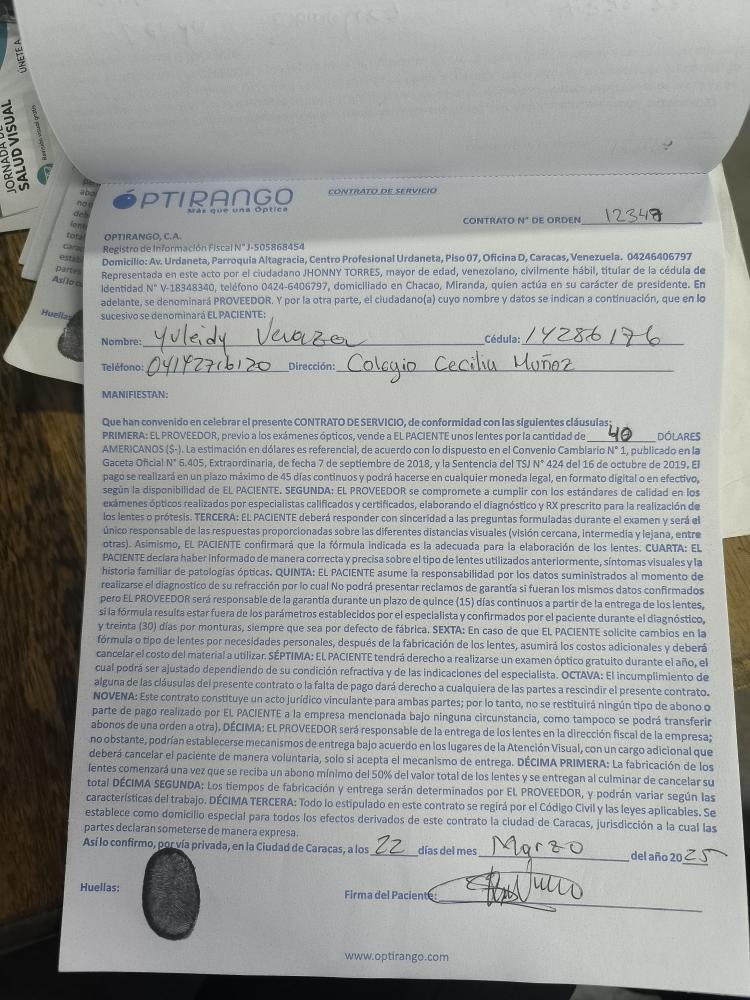 JORNADA DE
SALUD VISUAL
ÚNETE A
ÓPTIRANGO
Más que una Óptica
CONTRATO DE SERVICIO
CONTRATO N° DE ORDEN 12347
OPTIRANGO, C.A.
Registro de Información Fiscal N°J-505868454
Domicilio: Av. Urdaneta, Parroquia Altagracia, Centro Profesional Urdaneta, Piso 07, Oficina D, Caracas, Venezuela. 04246406797
Representada en este acto por el ciudadano JHONNY TORRES, mayor de edad, venezolano, civilmente hábil, titular de la cédula de
Identidad N° V-18348340, teléfono 0424-6406797, domiciliado en Chacao, Miranda, quien actúa en su carácter de presidente. En
adelante, se denominará PROVEEDOR. Y por la otra parte, el ciudadano(a) cuyo nombre y datos se indican a continuación, que en lo
sucesivo se denominará EL PACIENTE:
Nombre: Yuleidy Cédula: 14286176
Teléfono: 04142716120 Dirección: Colegio Cecilia Muñoz
MANIFIESTAN:
Que han convenido en celebrar el presente CONTRATO DE SERVICIO, de conformidad con las siguientes cláusulas:
PRIMERA: EL PROVEEDOR, previo a los exámenes ópticos, vende a EL PACIENTE unos lentes por la cantidad de 40 DÓLARES
AMERICANOS ($-). La estimación en dólares es referencial, de acuerdo con lo dispuesto en el Convenio Cambiario N° 1, publicado en la
Gaceta Oficial N° 6.405, Extraordinaria, de fecha 7 de septiembre de 2018, y la Sentencia del TSJ N° 424 del 16 de octubre de 2019. El
pago se realizará en un plazo máximo de 45 días continuos y podrá hacerse en cualquier moneda legal, en formato digital o en efectivo,
según la disponibilidad de EL PACIENTE. SEGUNDA: EL PROVEEDOR se compromete a cumplir con los estándares de calidad en los
exámenes ópticos realizados por especialistas calificados y certificados, elaborando el diagnóstico y RX prescrito para la realización de
los lentes o prótesis. TERCERA: EL PACIENTE deberá responder con sinceridad a las preguntas formuladas durante el examen y será el
único responsable de las respuestas proporcionadas sobre las diferentes distancias visuales (visión cercana, intermedia y lejana, entre
otras). Asimismo, EL PACIENTE confirmará que la fórmula indicada es la adecuada para la elaboración de los lentes. CUARTA: EL
PACIENTE declara haber informado de manera correcta y precisa sobre el tipo de lentes utilizados anteriormente, síntomas visuales y la
historia familiar de patologías ópticas. QUINTA: EL PACIENTE asume la responsabilidad por los datos suministrados al momento de
realizarse el diagnostico de su refracción por lo cual No podrá presentar reclamos de garantía si fueran los mismos datos confirmados
pero EL PROVEEDOR será responsable de la garantía durante un plazo de quince (15) días continuos a partir de la entrega de los lentes,
si la fórmula resulta estar fuera de los parámetros establecidos por el especialista y confirmados por el paciente durante el diagnóstico,
y treinta (30) días por monturas, siempre que sea por defecto de fábrica. SEXTA: En caso de que EL PACIENTE solicite cambios en la
fórmula o tipo de lentes por necesidades personales, después de la fabricación de los lentes, asumirá los costos adicionales y deberá
cancelar el costo del material a utilizar. SÉPTIMA: EL PACIENTE tendrá derecho a realizarse un examen óptico gratuito durante el año, el
cual podrá ser ajustado dependiendo de su condición refractiva y de las indicaciones del especialista. OCTAVA: El incumplimiento de
alguna de las cláusulas del presente contrato o la falta de pago dará derecho a cualquiera de las partes a rescindir el presente contrato.
NOVENA: Este contrato constituye un acto jurídico vinculante para ambas partes; por lo tanto, no se restituirá ningún tipo de abono o
parte de pago realizado por EL PACIENTE a la empresa mencionada bajo ninguna circunstancia, como tampoco se podrá transferir
abonos de una orden a otra). DÉCIMA: EL PROVEEDOR será responsable de la entrega de los lentes en la dirección fiscal de la empresa;
no obstante, podrían establecerse mecanismos de entrega bajo acuerdo en los lugares de la Atención Visual, con un cargo adicional que
deberá cancelar el paciente de manera voluntaria, solo si acepta el mecanismo de entrega. DÉCIMA PRIMERA: La fabricación de los
lentes comenzará una vez que se reciba un abono mínimo del 50% del valor total de los lentes y se entregan al culminar de cancelar su
total DÉCIMA SEGUNDA: Los tiempos de fabricación y entrega serán determinados por EL PROVEEDOR, y podrán variar según las
características del trabajo. DÉCIMA TERCERA: Todo lo estipulado en este contrato se regirá por el Código Civil y las leyes aplicables. Se
establece como domicilio especial para todos los efectos derivados de este contrato la ciudad de Caracas, jurisdicción a la cual las
partes declaran someterse de manera expresa.
Así lo confirmo, por vía privada, en la Ciudad de Caracas, a los 22 días del mes Marzo del año 2025
Huellas:
Firma del Paciente:
www.optirango.com